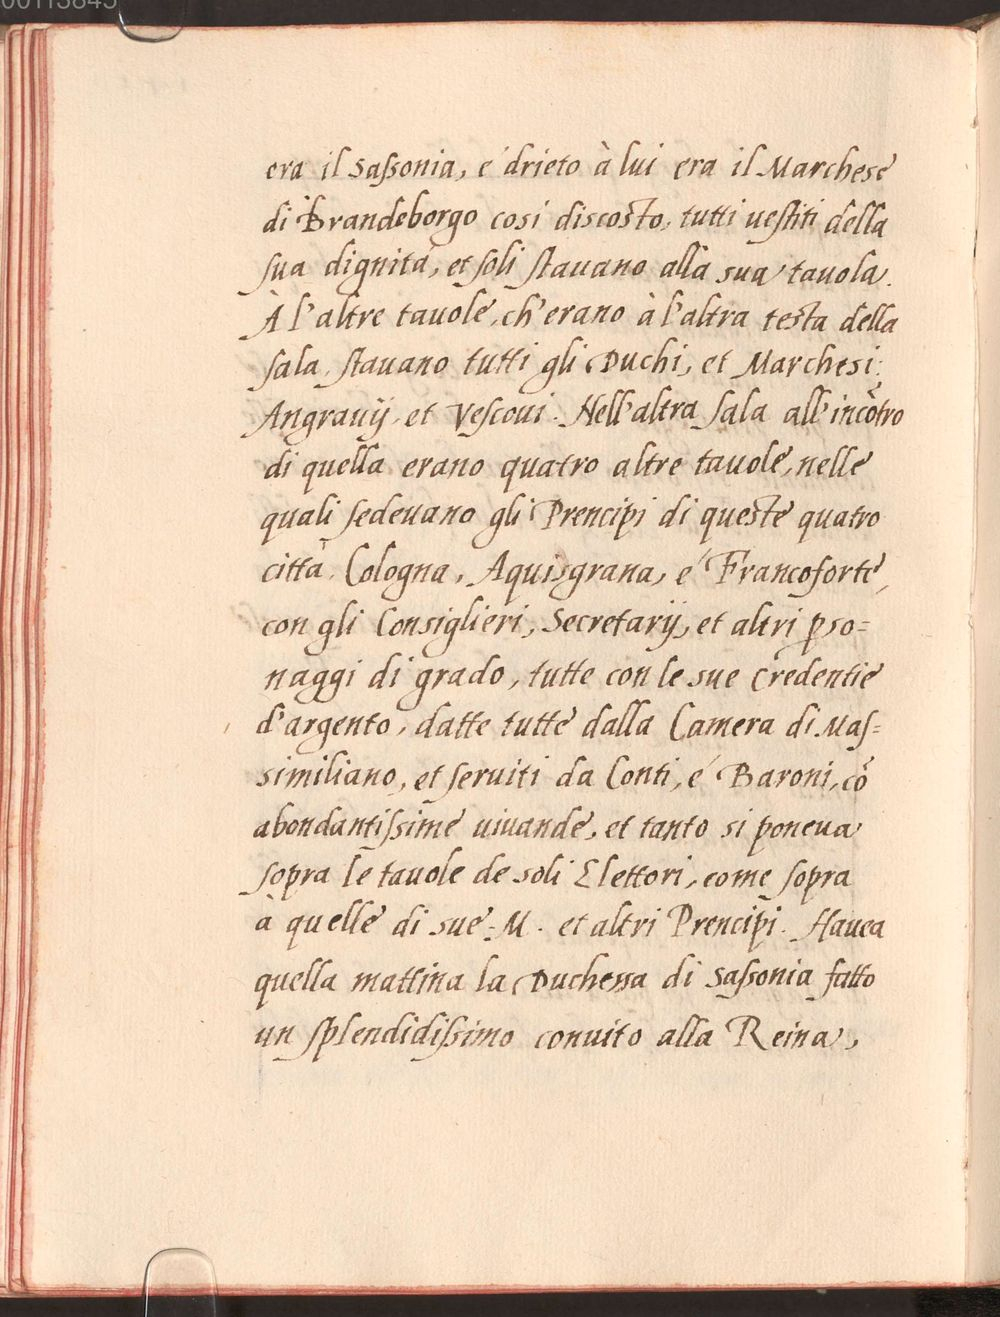 00113845
era il Sassonia, e' drieto à lui era il Marchese
di Brandeborgo cosi discosto, tutti uestiti della
sua dignità, et soli stauano alla sua tauola.
À l'altre tauole, ch'erano à l'altra testa della
sala, stauano tutti gli Duchi, et Marchesi,
Angrauij, et Vescoui. Nell'altra sala all'incõtro
di quella erano quatro altre tauole, nelle
quali sedeuano gli Prencipi di queste quatro
città, Cologna, Aquisgrana, e' Francoforte,
con gli Consiglieri, Secretarij, et altri p̱so=
naggi di grado, tutte con le sue credentie
d'argento, datte tutte dalla Camera di Mas=
similiano, et seruiti da Conti, e' Baroni, cõ
abondantissime uiuande, et tanto si poneua
sopra le tauole de soli Elettori, come sopra
à quelle di sue M. et altri Prencipi. Hauea
quella mattina la Duchessa di Sassonia fatto
un splendidissimo conuito alla Reina,